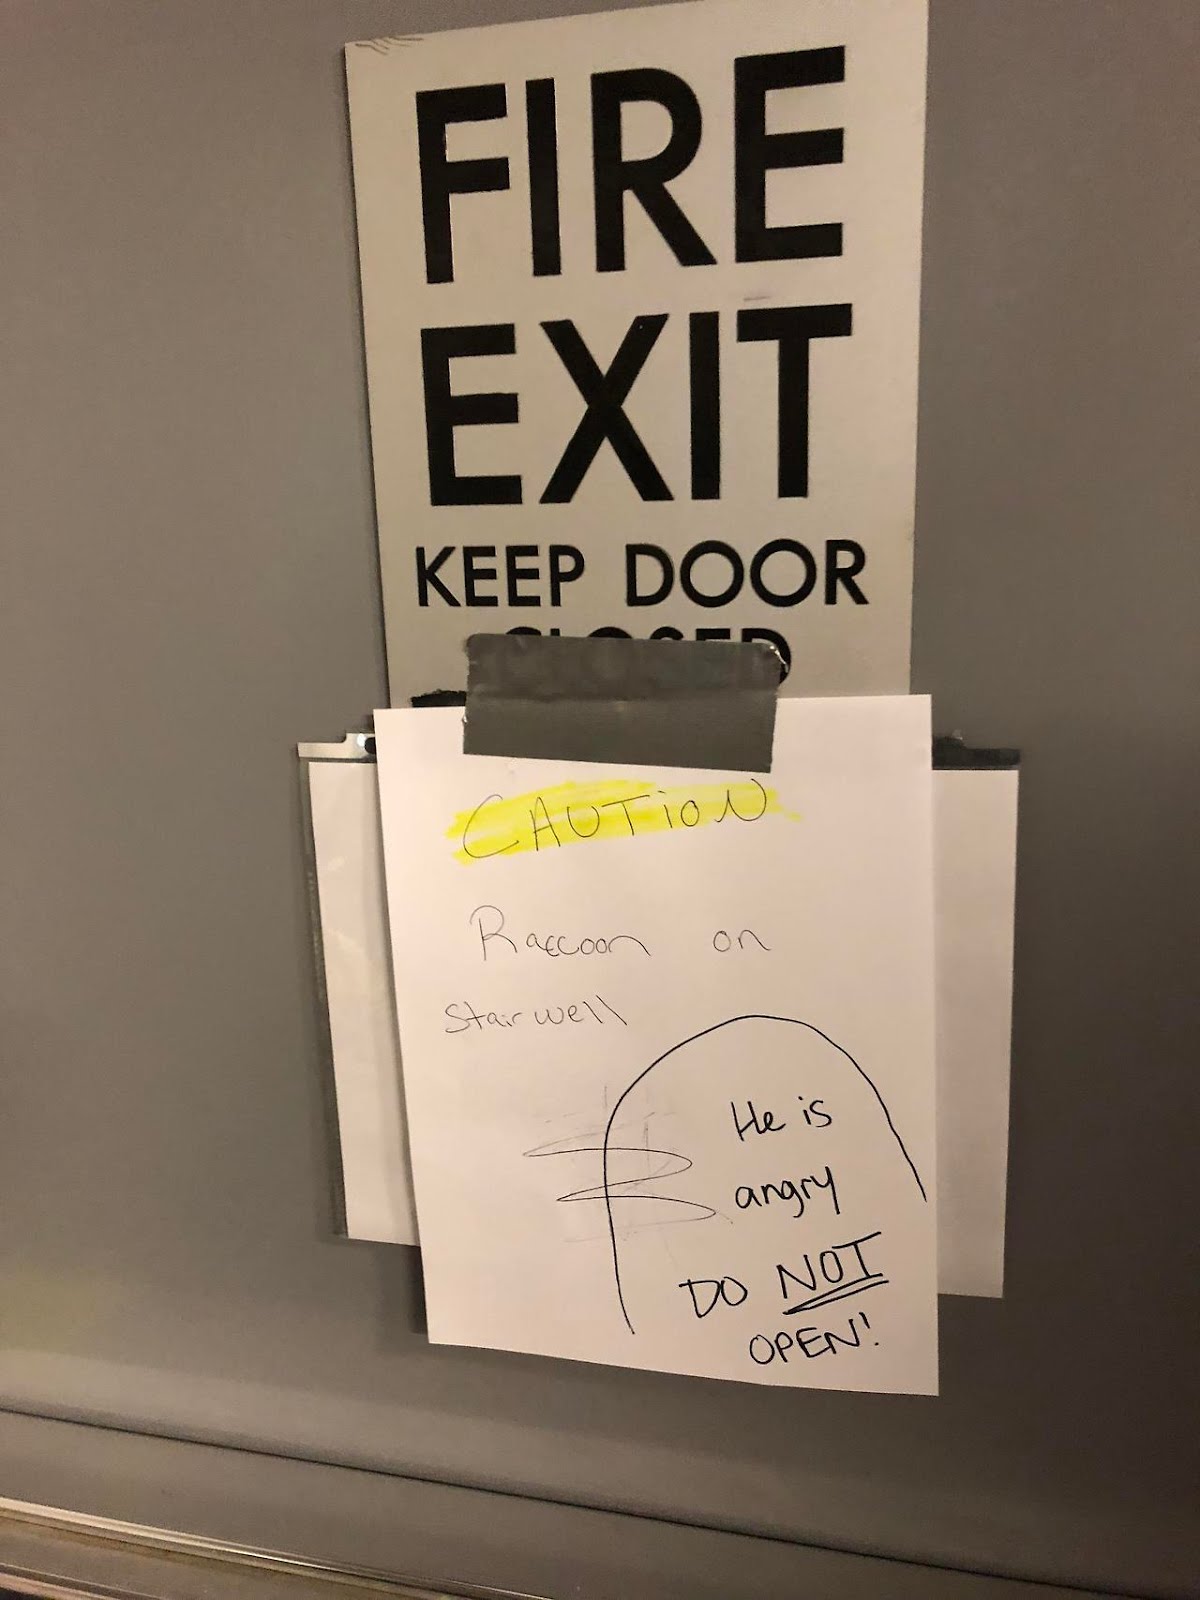 FIRE
EXIT
KEEP DOOR
CLOSED
CAUTiON
Raccoon on
stairwell
He is
angry
DO NOT
OPEN!